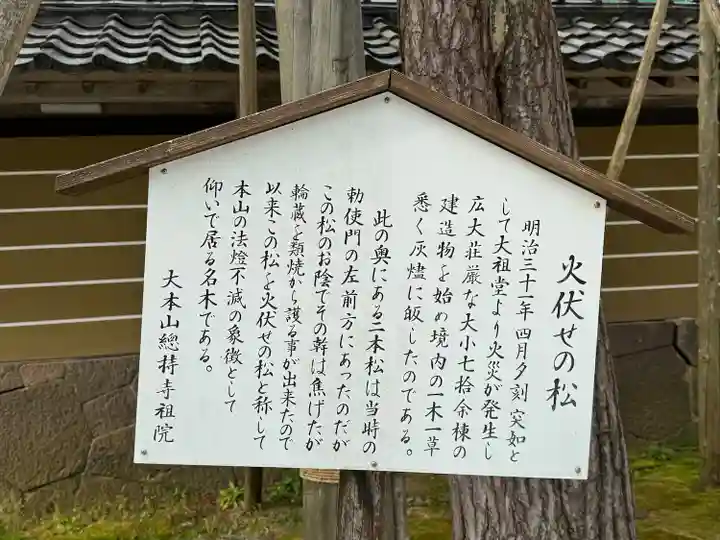 火伏せの松
明治三十一年四月夕刻 突如と
して大祖堂より火災が発生し
広大荘厳な大小七拾余棟の
建造物を始め境内の一木一草
悉く灰燼に皈したのである。
此の奥にある二本松は当時の
勅使門の左前方にあったのだが
この松のお陰でその幹は焦げたが
輪蔵を類焼から護る事が出来たので
以来この松を火伏せの松と称して
本山の法燈不滅の象徴として
仰いで居る名木である。
大本山總持寺祖院